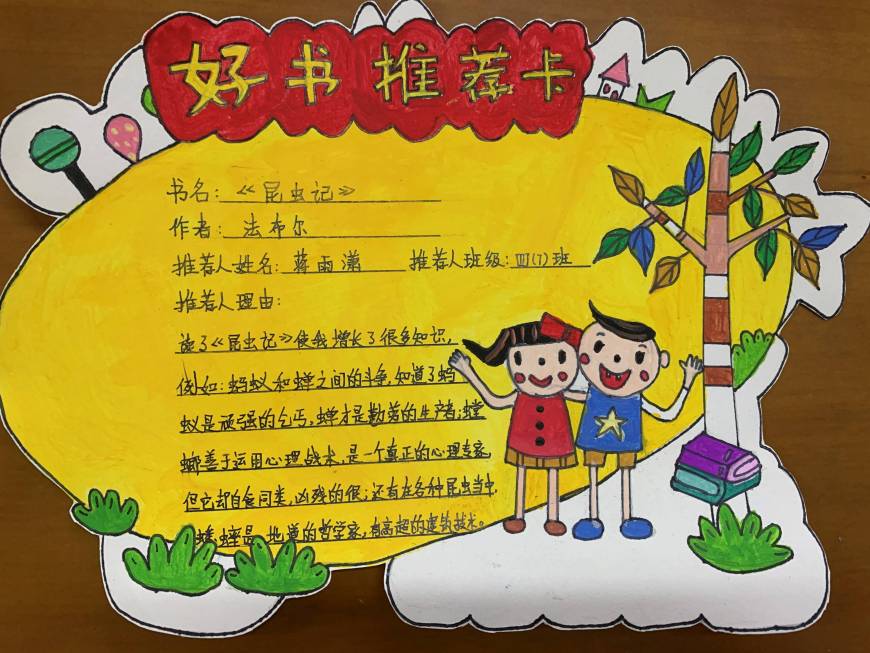 好书推荐卡
书名：《昆虫记》
作者：法布尔
推荐人姓名：蒋雨潇 推荐人班级：四(7)班
推荐人理由：
读了《昆虫记》使我增长了很多知识，
例如：蚂蚁和蝉之间的斗争，知道了蚂
蚁是顽强的乞丐，蝉才是勤劳的生产者；螳
螂善于运用心理战术，是一个真正的心理专家，
但它却自食同类，凶残的很；还有在各种昆虫当中，
蟋蟀是地道的哲学家，有高超的建筑技术。